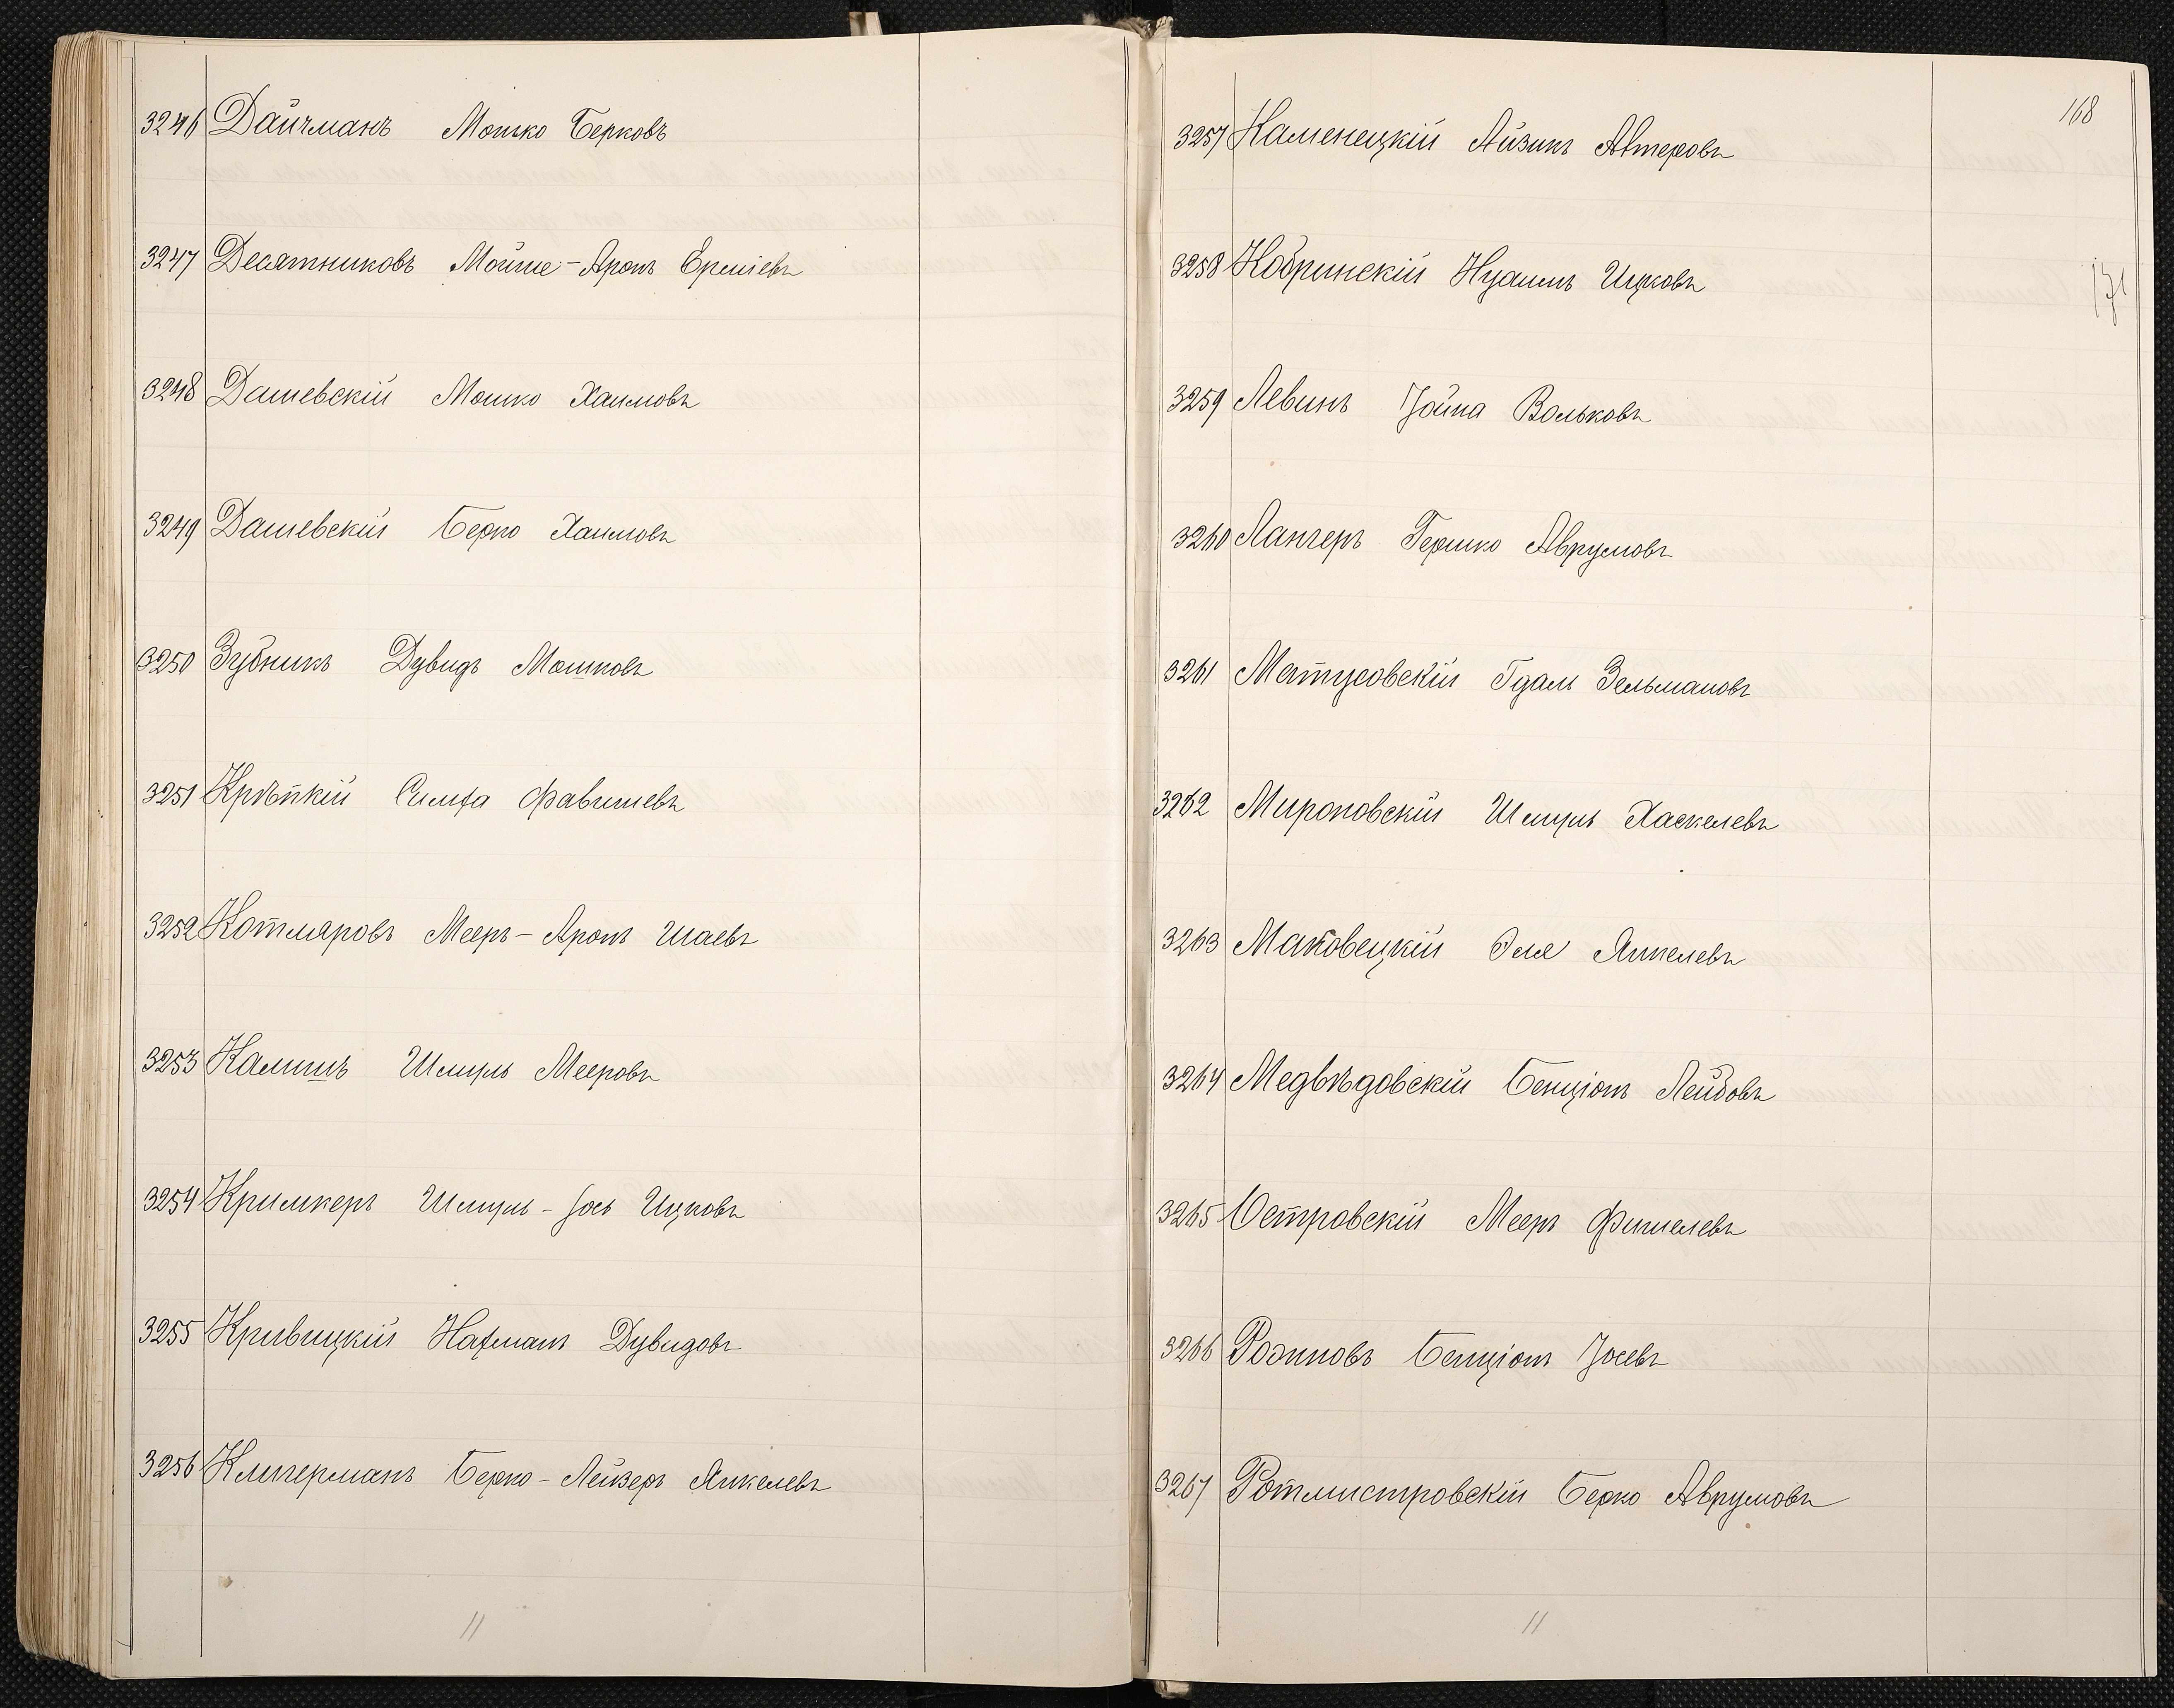 3246 Дайчманъ Мошко Берковъ
3247 Десятниковъ Мойше-Аронъ Ершіевъ
3248 Дашевскій Мошко Хаимовъ
3249 Дашевскій Берко Хаимовъ
3250 Зубникъ Дувидъ Мошковъ
3251 Крѣпкій Симха Фавишевъ
3252 Котляровъ Мееръ-Аронъ Шаевъ
3253 Калишъ Шмуль Мееровъ
3254 Кримкеръ Шмуль-Іось Ицковъ
3255 Кривицкій Нахманъ Дувидовъ
3256 Клигерманъ Берко-Лейзеръ Янкелевъ
11
168
171
3257 Каменецкій Айзикъ Алтеровъ
3258 Кобринскій Нухимъ Ицковъ
3259 Левинъ Іойна Вольковъ
3260 Лангеръ Гершко Аврумовъ
3261 Матусовскій Гдаль Зельмановъ
3262 Мироновскій Шмуль Хаскелевъ
3263 Маковецкій Эля Янкелевъ
3264 Медвѣдовскій Бенціонъ Лейбовъ
3265 Островскій Мееръ Фишелевъ
3266 Розиновъ Бенціонъ Іосевъ
3267 Ротмистровскій Берко Аврумовъ
11